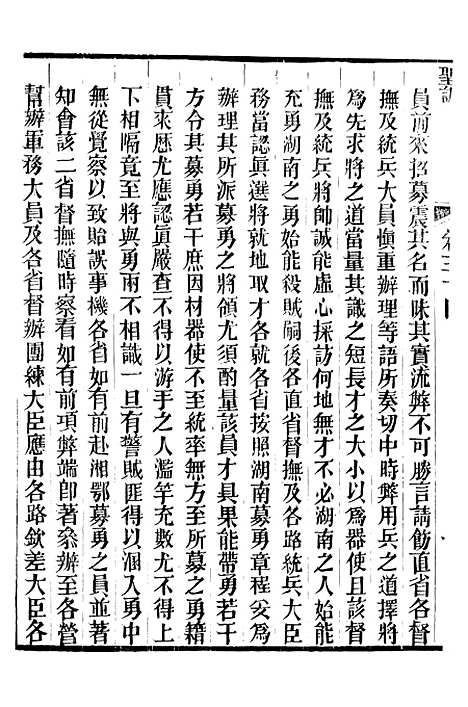 聖訓
員前來招募震其名而昧其實流弊不可勝言請飭直省各督
撫及統兵大員愼重辦理等語所奏切中時弊用兵之道擇將
爲先求將之道當量其識之短長才之大小以爲器使且該督
撫及統兵將帥誠能虛心採訪何地無才不必湖南之人始能
充勇湖南之勇始能殺賊嗣後各直省督撫及各路統兵大臣
務當認眞選將就地取才各就各省按照湖南募勇章程妥爲
辦理其所派募勇之將領尤須酌量該員才具果能帶勇若干
方令其募勇若干庶因材器使不至統率無方至所募之勇籍
貫來歷尤應認眞嚴查不得以游手之人濫竽充數尤不得上
下相隔竟至將與勇兩不相識一旦有警賊匪得以溷入勇中
無從覺察以致貽誤事機各省如有前赴湘鄂募勇之員並著
知會該二省督撫隨時察看如有前項弊端卽著叅辦至各營
幫辦軍務大員及各省督辦團練大臣應由各路欽差大臣各